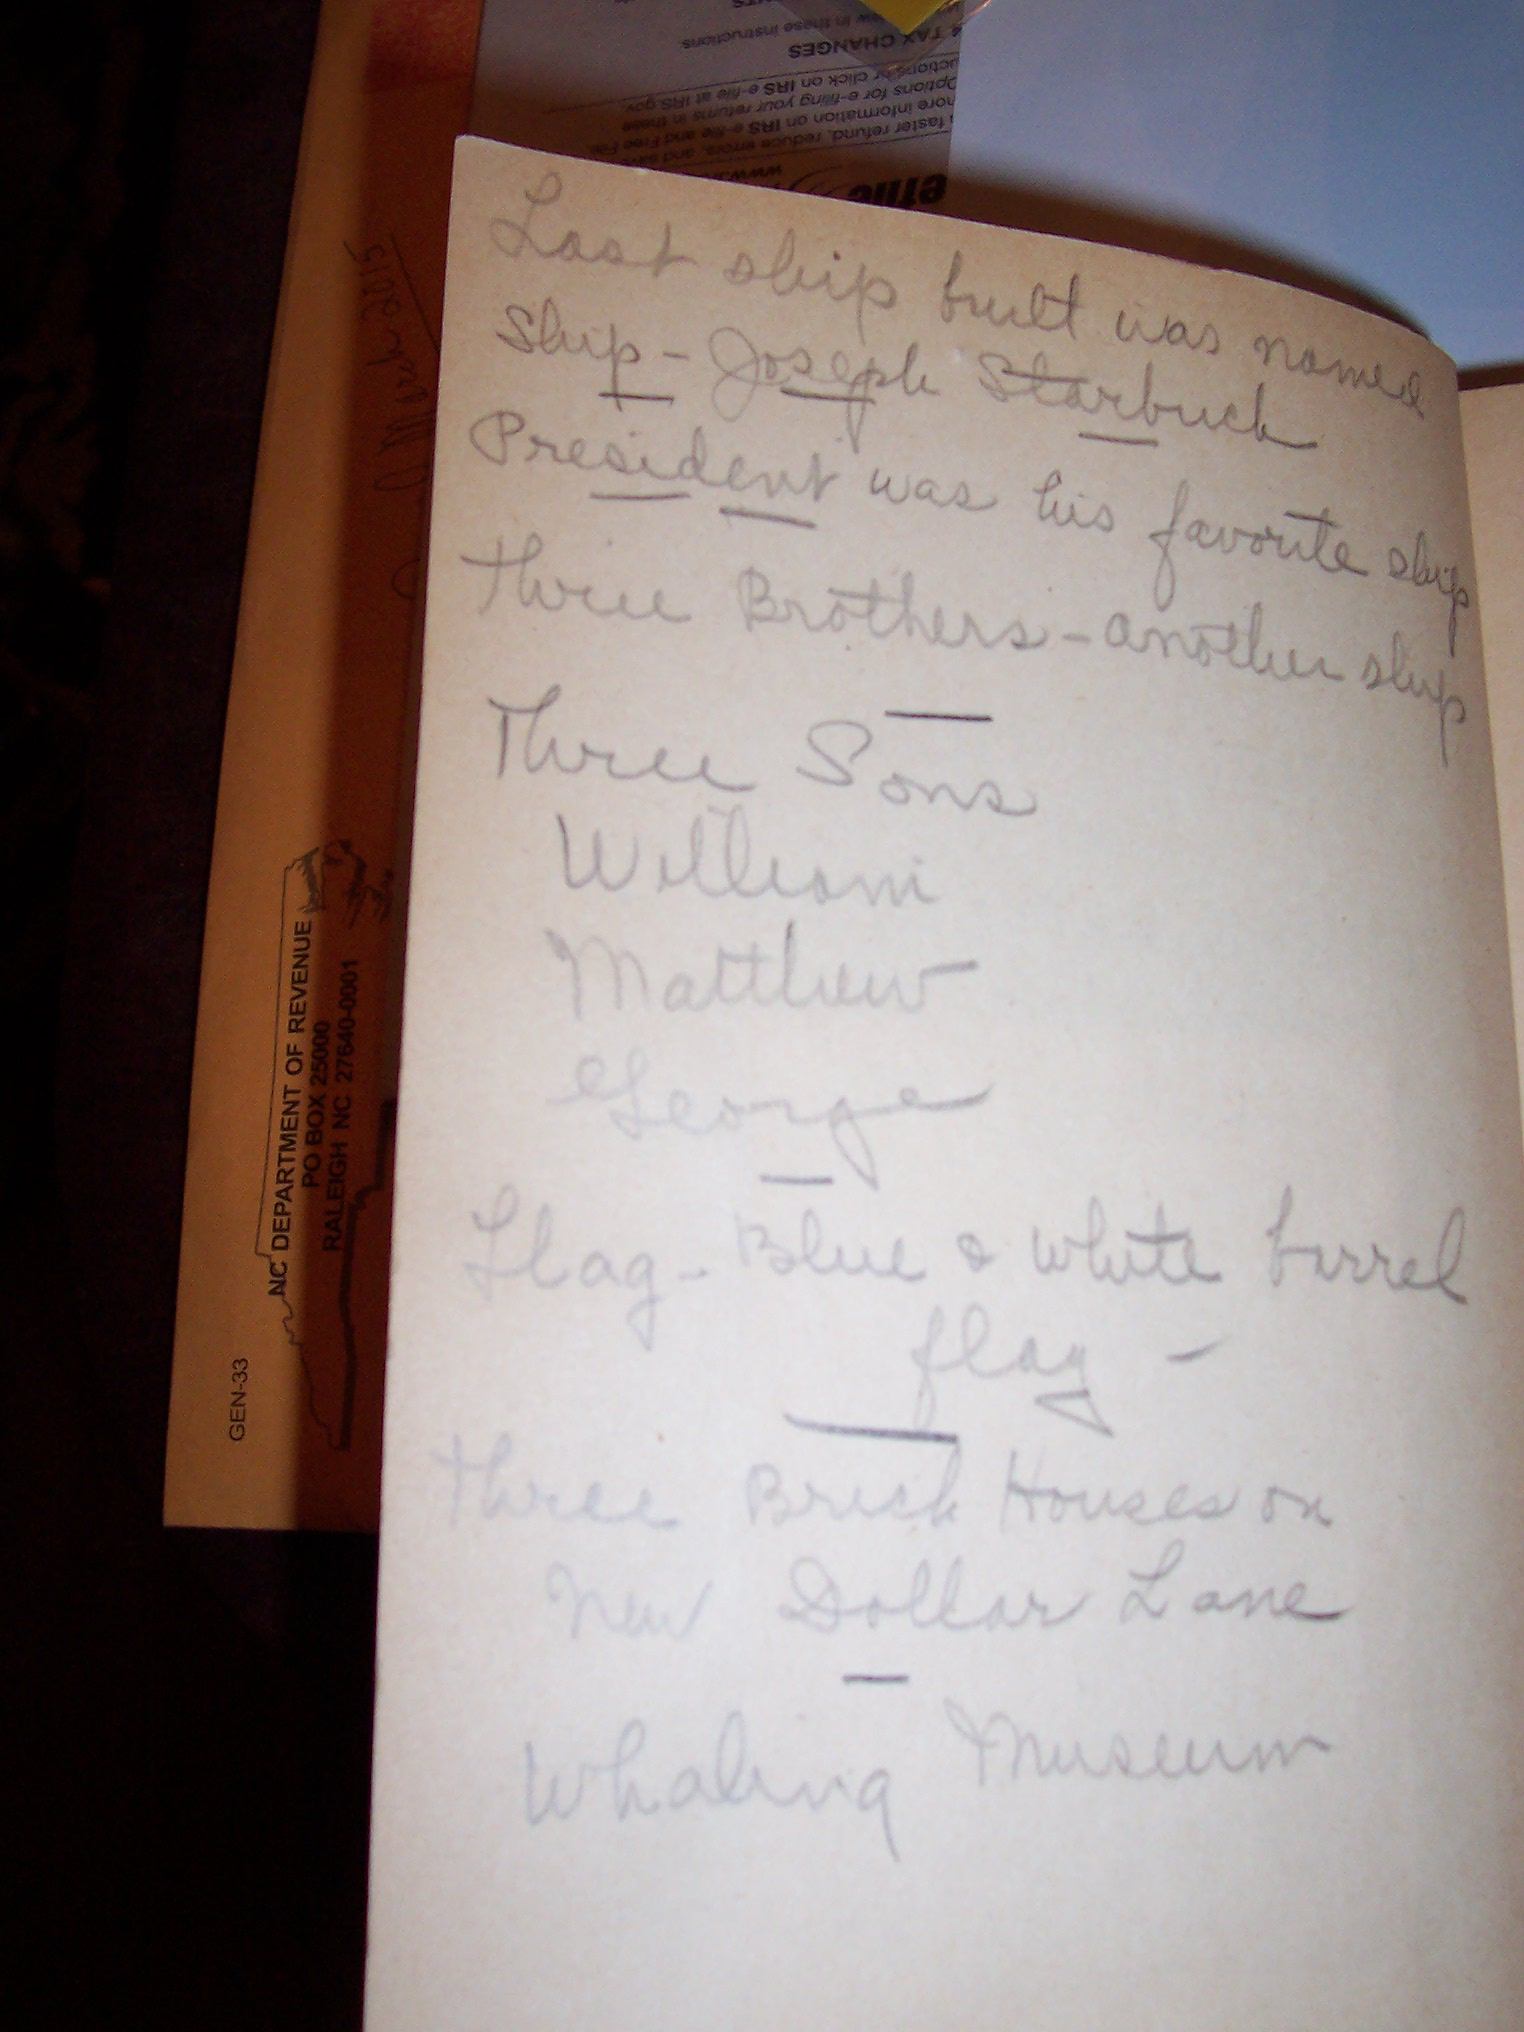 Last ship built was named
Ship - Joseph Starbuck
President was his favorite ship
Three Brothers - another ship
Three Sons
William
Matthew
George
Flag - Blue & white barrel
flag -
Three Brick Houses on
New Dollar Lane
Whaling Museum
NC DEPARTMENT OF REVENUE
PO BOX 25000
RALEIGH NC 27640-0001
GEN-33
March 2015
efile
www.
faster refund, reduce errors, and save
more information on IRS e-file and Free File
Options for e-filing your returns in these
or click on IRS e-file at IRS.gov.
TAX CHANGES
in these instructions.